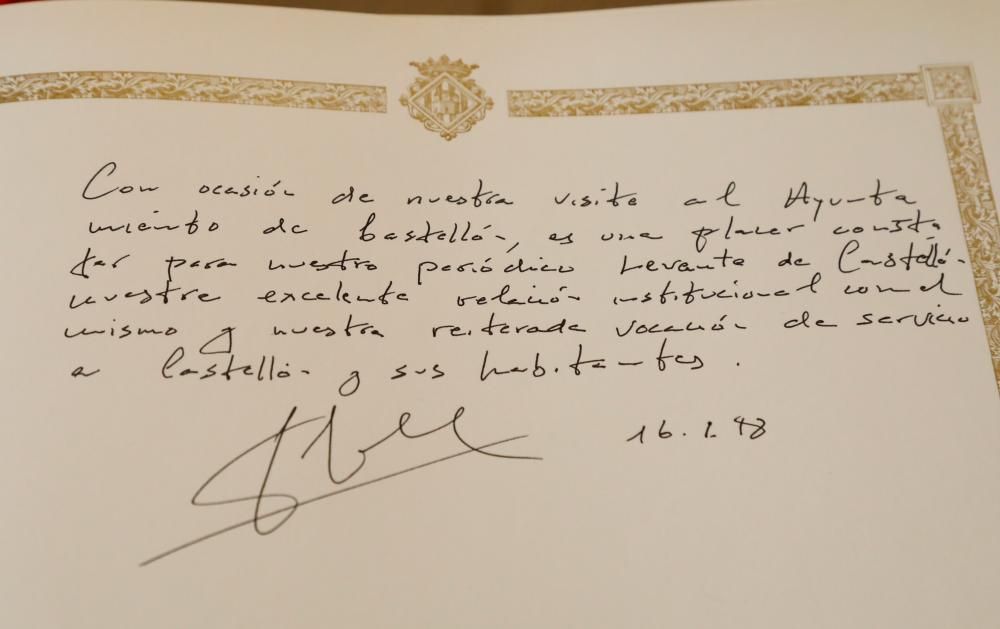 Con ocasión de nuestra visita al Ayunta
miento de Castellón, es una placer consta
tar para nuestro periódico Levante de Castellón
nuestra excelente relación institucional con el
mismo y nuestra reiterada vocación de servicio
a Castellón y sus habitantes.
16.1.98